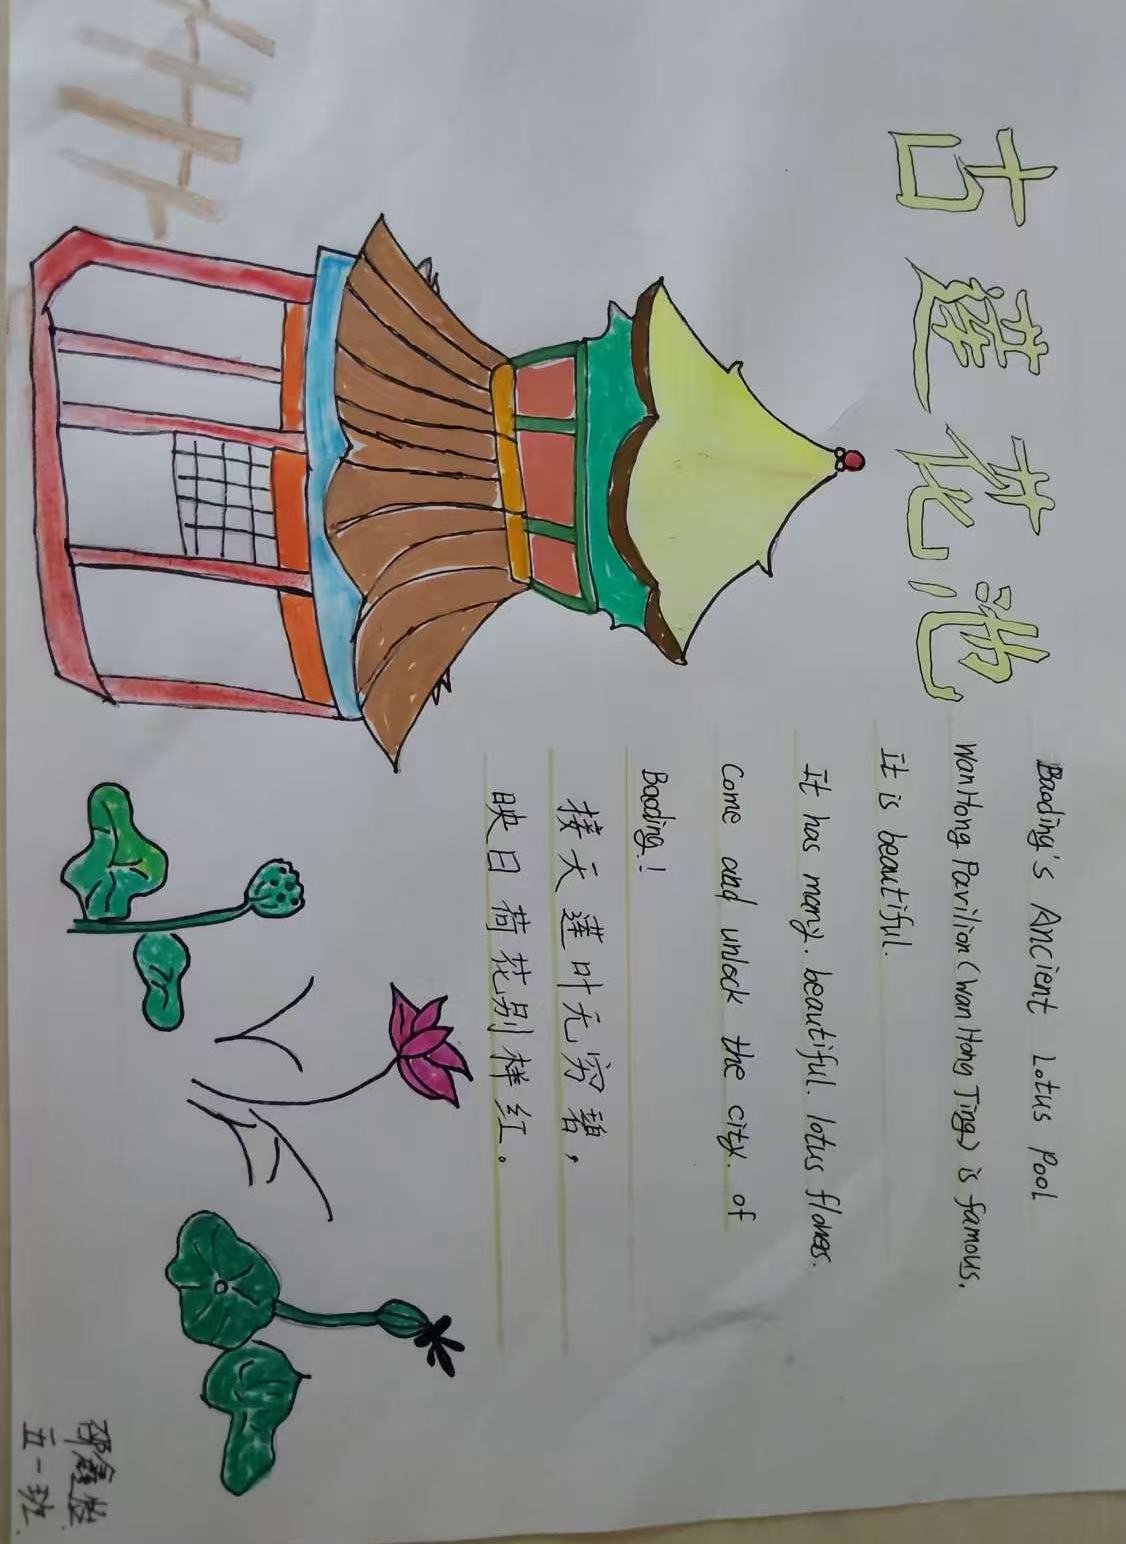 古莲花池
Baoding's Ancient Lotus Pool
WanHong Pavilion (Wan Hong Ting) is famous.
It is beautiful.
It has many. beautiful. lotus
Come and unlock the city. of
Baoding!
接天莲叶无穷碧，
映日荷花别样红。
五一班